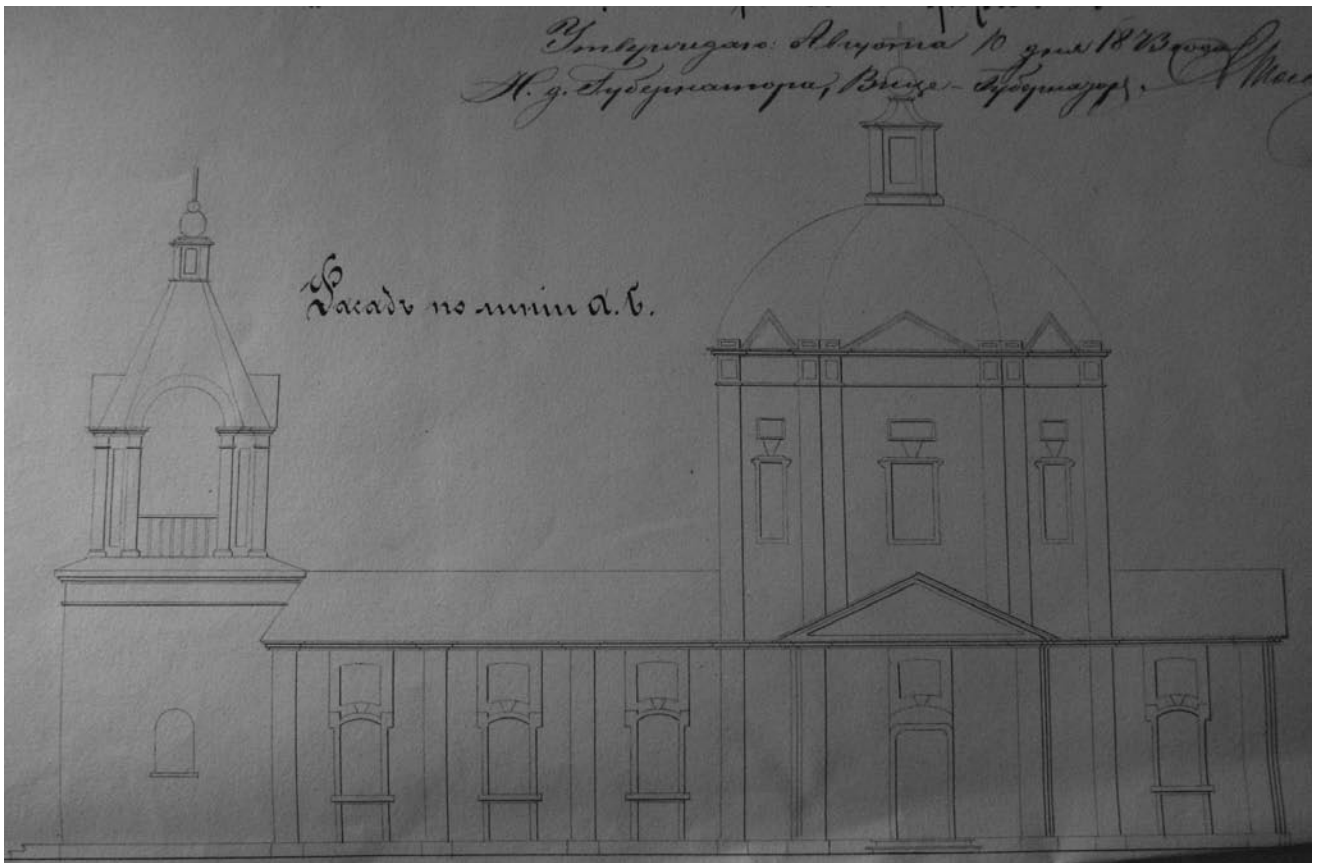 Утверждаю: Августа 10 дня 1873 года
И. д. Губернатора, Вице-Губернаторъ
Фасадъ по линіи а. б.